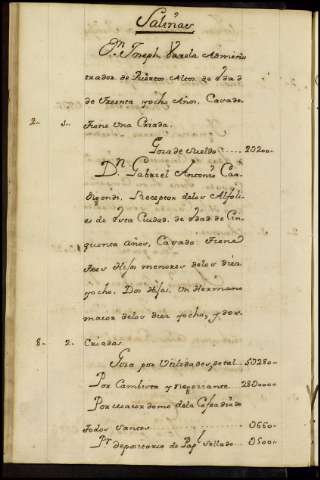 Salinas
Dn. Joseph Varela Adminis
trador de Puertos Altos de edad
de treinta y ocho años, Casado.
2. 1. Tiene una Criada.
Goza de sueldo ..... 20200
Dn. Gabriel Antonio
Receptor delos Alfolí
es de esta Ciudad, de edad de Cin
quenta años, Casado. Tiene
tres Hijos menores delos diez
yocho. Dos Hijas. Un Hermano
maior delos diez yocho, y dos
8. 2. Criadas
Goza por Utilidades, petal... 50280
Por Cambista y negociante 280000
Por maiordomo dela Cofradia de
todos Santos ........ 0660
Pr. depositario de Papl. Sellado ... 0500